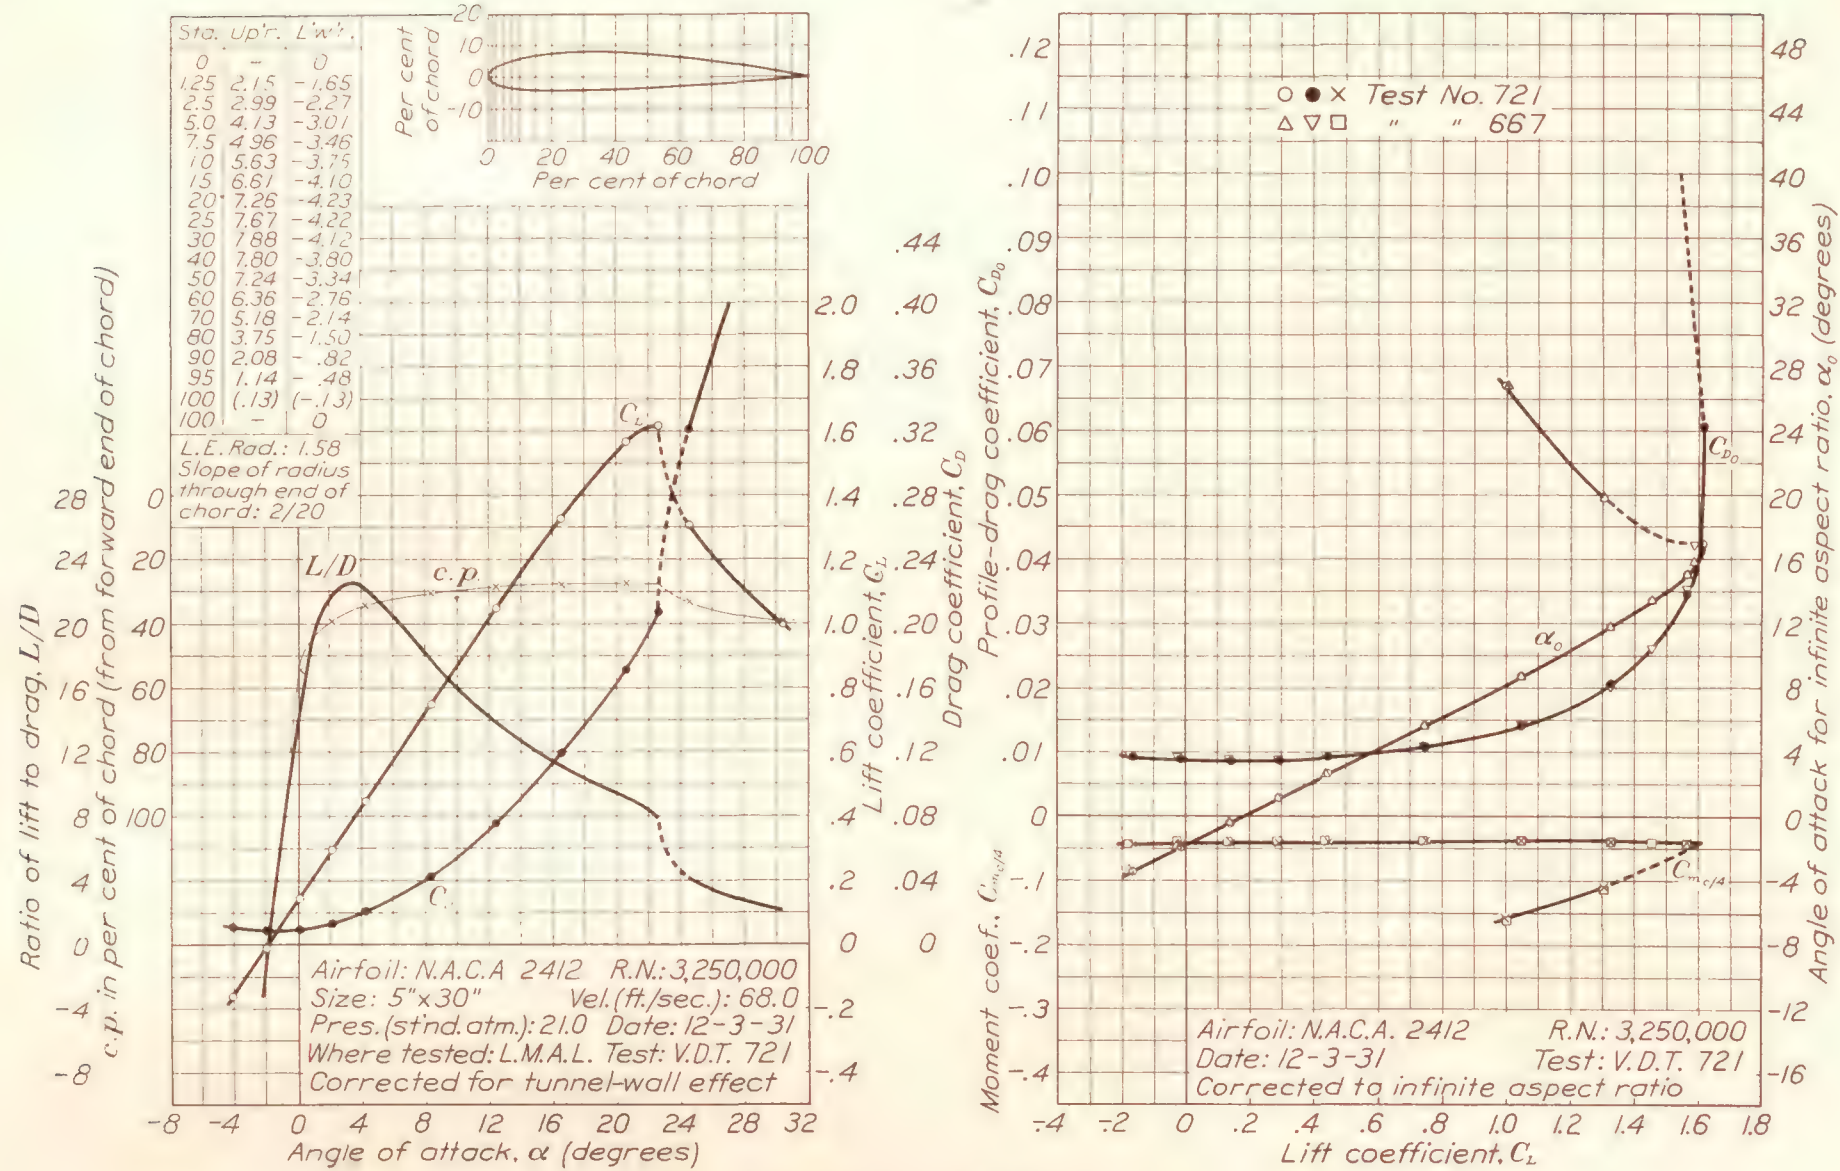 Sta. Up'r. L'w'r.
0 – 0
1.25 2.15 -1.65
2.5 2.99 -2.27
5.0 4.13 -3.01
7.5 4.96 -3.46
10 5.63 -3.75
15 6.61 -4.10
20 7.26 -4.23
25 7.67 -4.22
30 7.88 -4.12
40 7.80 -3.80
50 7.24 -3.34
60 6.36 -2.76
70 5.18 -2.14
80 3.75 -1.50
90 2.08 -.82
95 1.14 -.48
100 (.13) (-.13)
100 – 0
L.E. Rad.: 1.58
Slope of radius
through end of
chord: 2/20
Per cent
of chord
20
10
0
-10
0 20 40 60 80 100
Per cent of chord
Ratio of lift to drag, L/D
28
24
20
16
12
8
4
0
-4
-8
c.p. in per cent of chord (from forward end of chord)
0
20
40
60
80
100
L/D
c.p.
C_L
C
2.0
1.8
1.6
1.4
1.2
1.0
.8
.6
.4
.2
0
-.2
-.4
Lift coefficient, C_L
.44
.40
.36
.32
.28
.24
.20
.16
.12
.08
.04
0
Drag coefficient, C_D
Airfoil: N.A.C.A 2412 R.N.: 3,250,000
Size: 5"x30" Vel.(ft./sec.): 68.0
Pres.(st'nd. atm.): 21.0 Date: 12-3-31
Where tested: L.M.A.L. Test: V.D.T. 721
Corrected for tunnel-wall effect
-8 -4 0 4 8 12 16 20 24 28 32
Angle of attack, α (degrees)
Profile-drag coefficient, C_D0
.12
.11
.10
.09
.08
.07
.06
.05
.04
.03
.02
.01
0
Moment coef., C_mc/4
-.1
-.2
-.3
-.4
○ ● × Test No. 721
△ ▽ □ " " 667
C_D0
α_0
C_mc/4
48
44
40
36
32
28
24
20
16
12
8
4
0
-4
-8
-12
-16
Angle of attack for infinite aspect ratio, α_0 (degrees)
Airfoil: N.A.C.A. 2412 R.N.: 3,250,000
Date: 12-3-31 Test: V.D.T. 721
Corrected to infinite aspect ratio
-.4 -.2 0 .2 .4 .6 .8 1.0 1.2 1.4 1.6 1.8
Lift coefficient, C_L